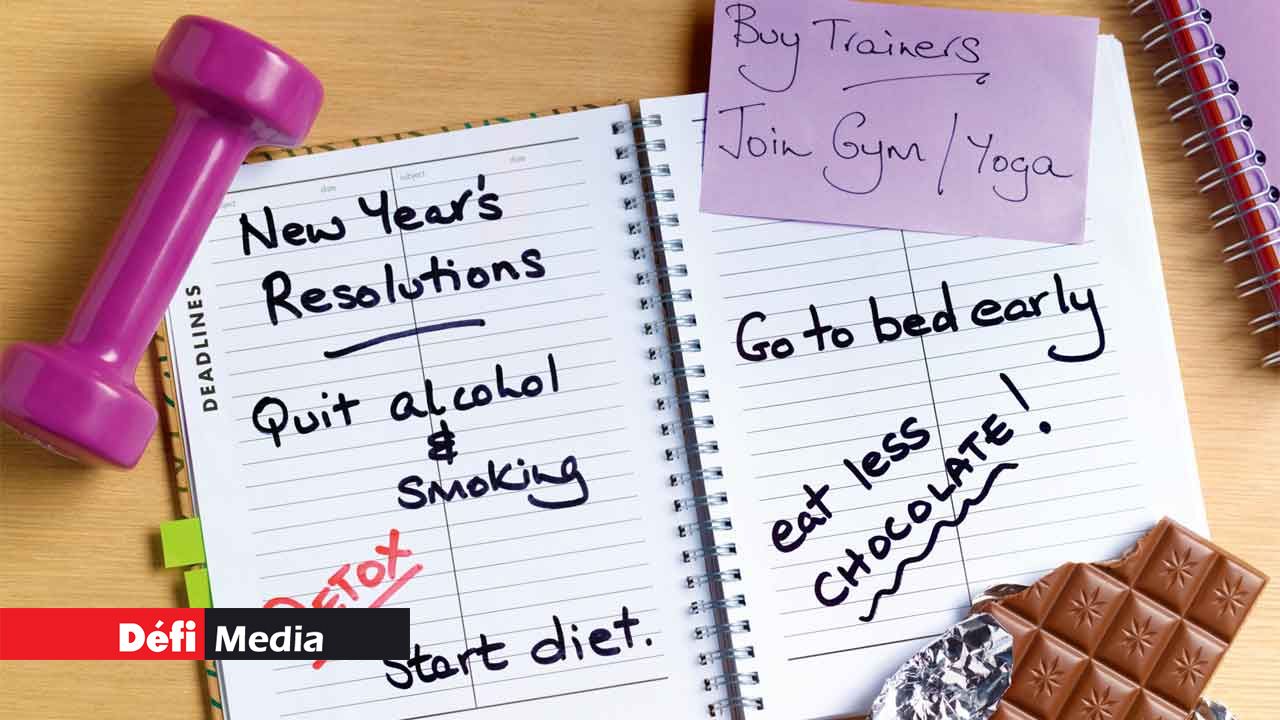 Buy Trainers
Join Gym / Yoga
date
subject
date
DEADLINES
New Year's
Resolutions
Quit alcohol
&
smoking
DETOX
Start diet.
Go to bed early
eat less
CHOCOLATE!
Défi Media